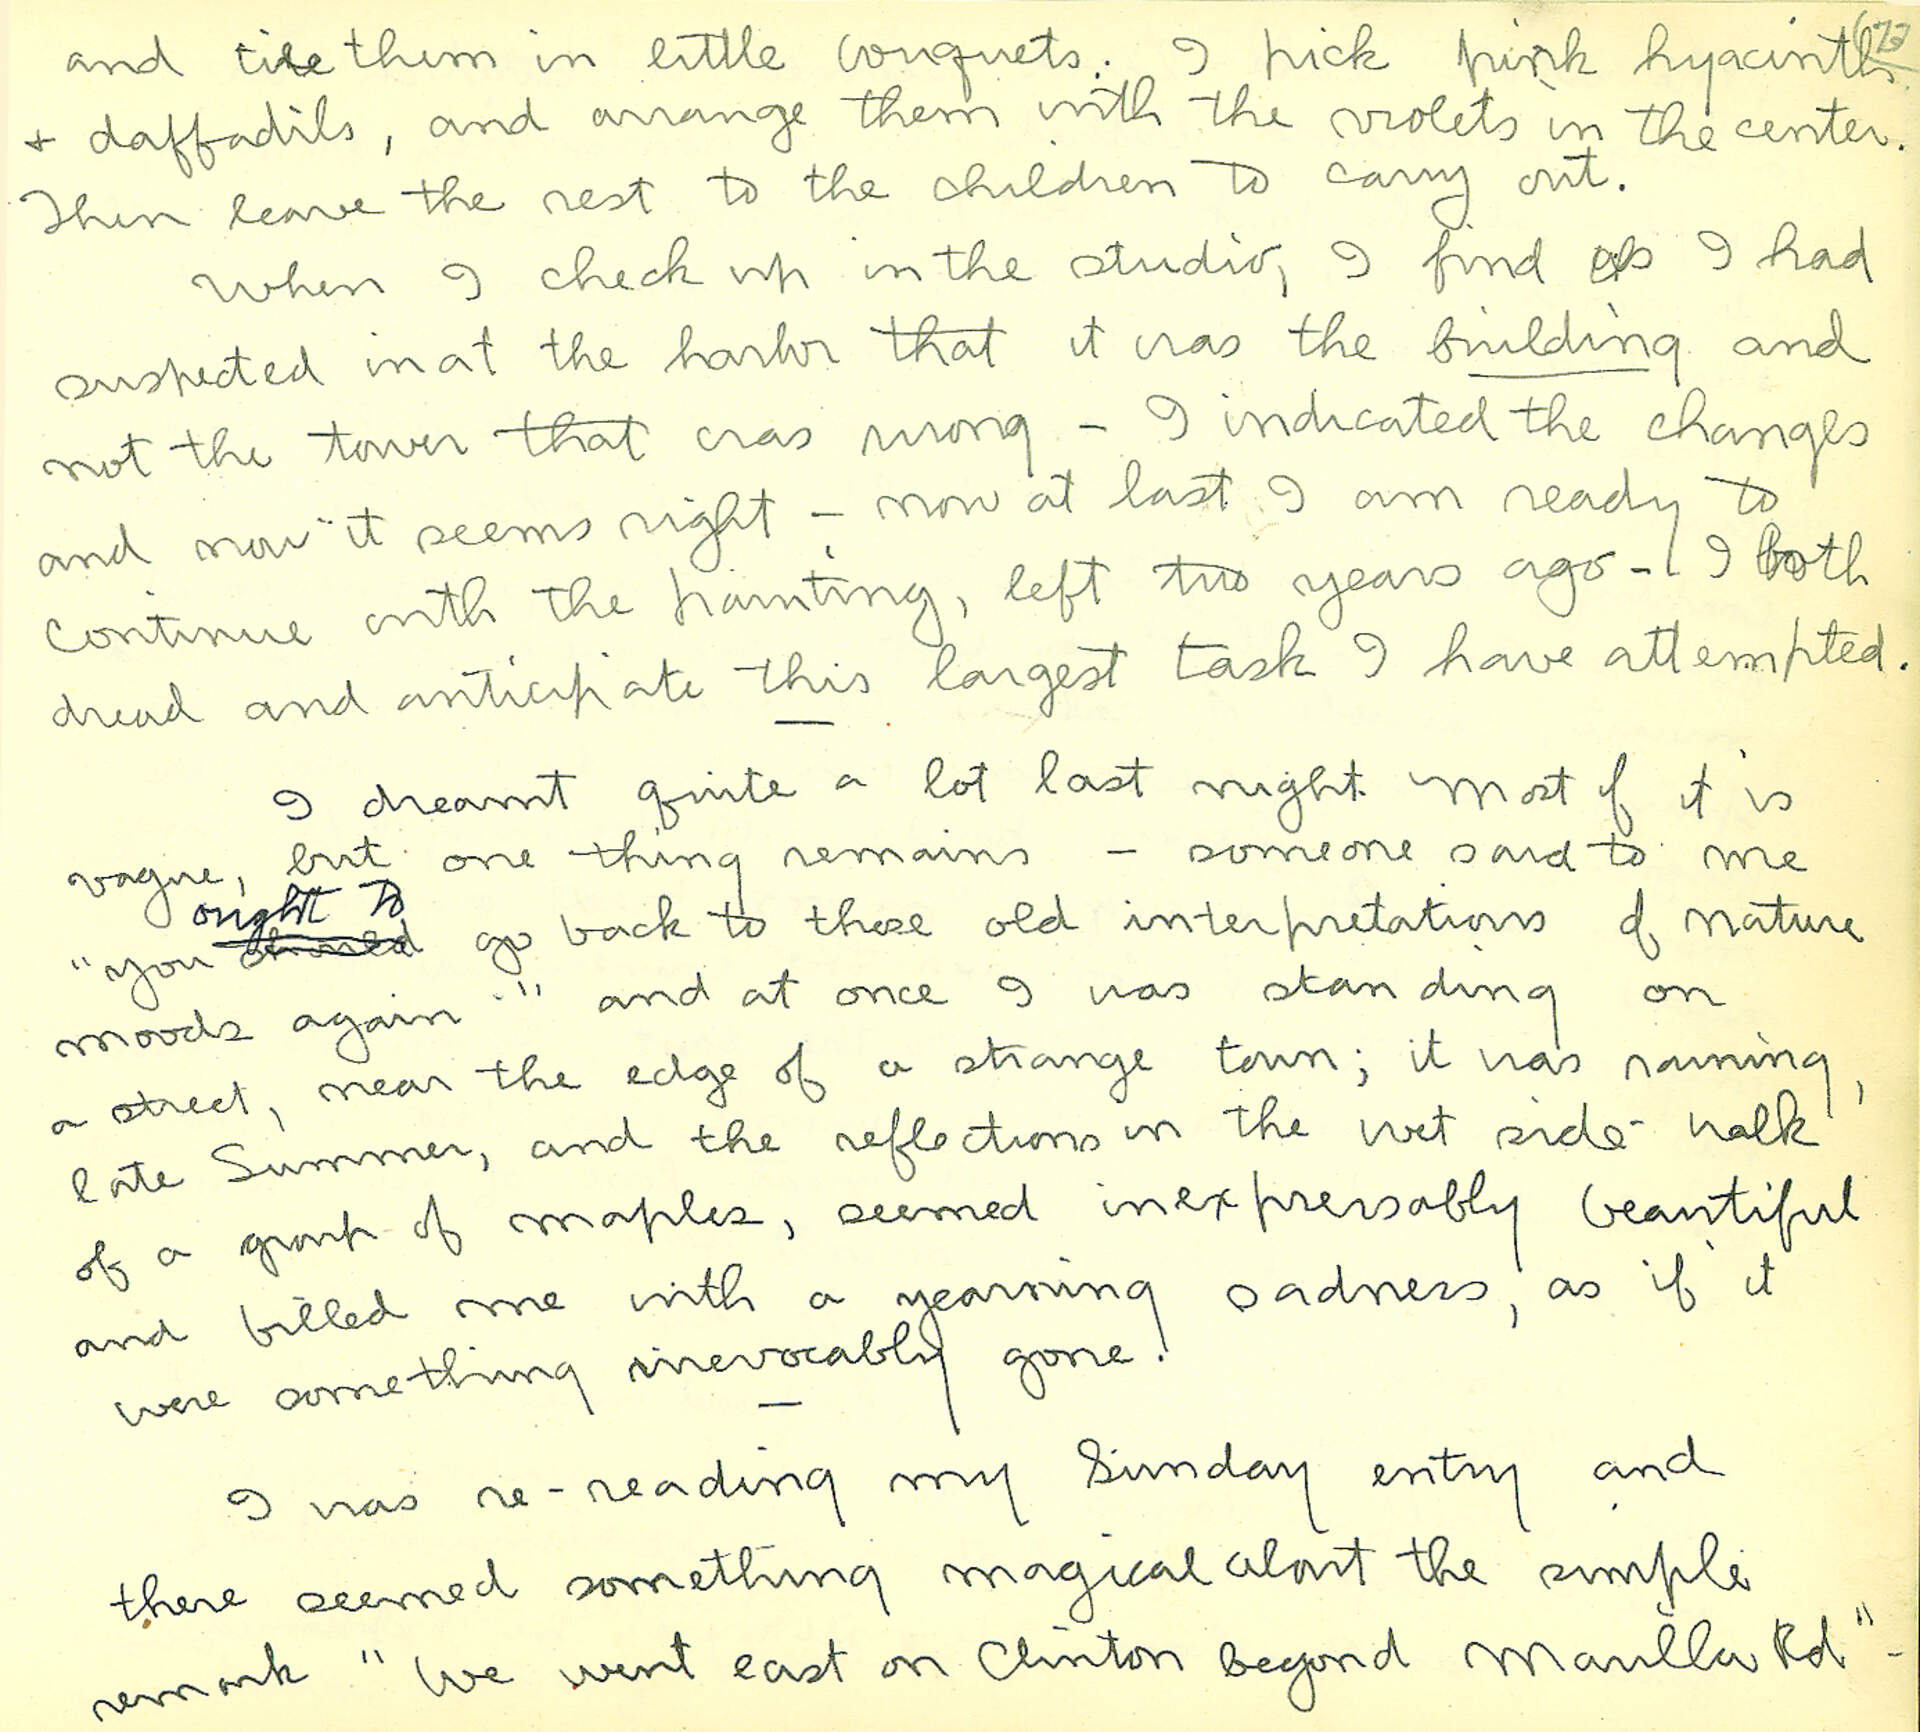 672
and tie them in little bouquets. I pick pink hyacinths
+ daffadils, and arrange them with the violets in the center.
Then leave the rest to the children to carry out.
When I check up in the studio, I find as I had
suspected in at the harbor that it was the building and
not the tower that was wrong - I indicated the changes
and now it seems right - now at last I am ready to
continue with the painting, left two years ago - I both
dread and anticipate this largest task I have attempted.
I dreamt quite a lot last night. Most of it is
vague, but one thing remains - someone said to me
"you ought to go back to those old interpretations of nature
moods again." and at once I was standing on
a street, near the edge of a strange town; it was raining,
late Summer, and the reflections in the wet side-walk
of a group of maples, seemed inexpressably beautiful
and filled me with a yearning sadness, as if it
were something irrevocably gone.
I was re-reading my Sunday entry and
there seemed something magical about the simple
remark "We went east on Clinton beyond Marilla Rd" -